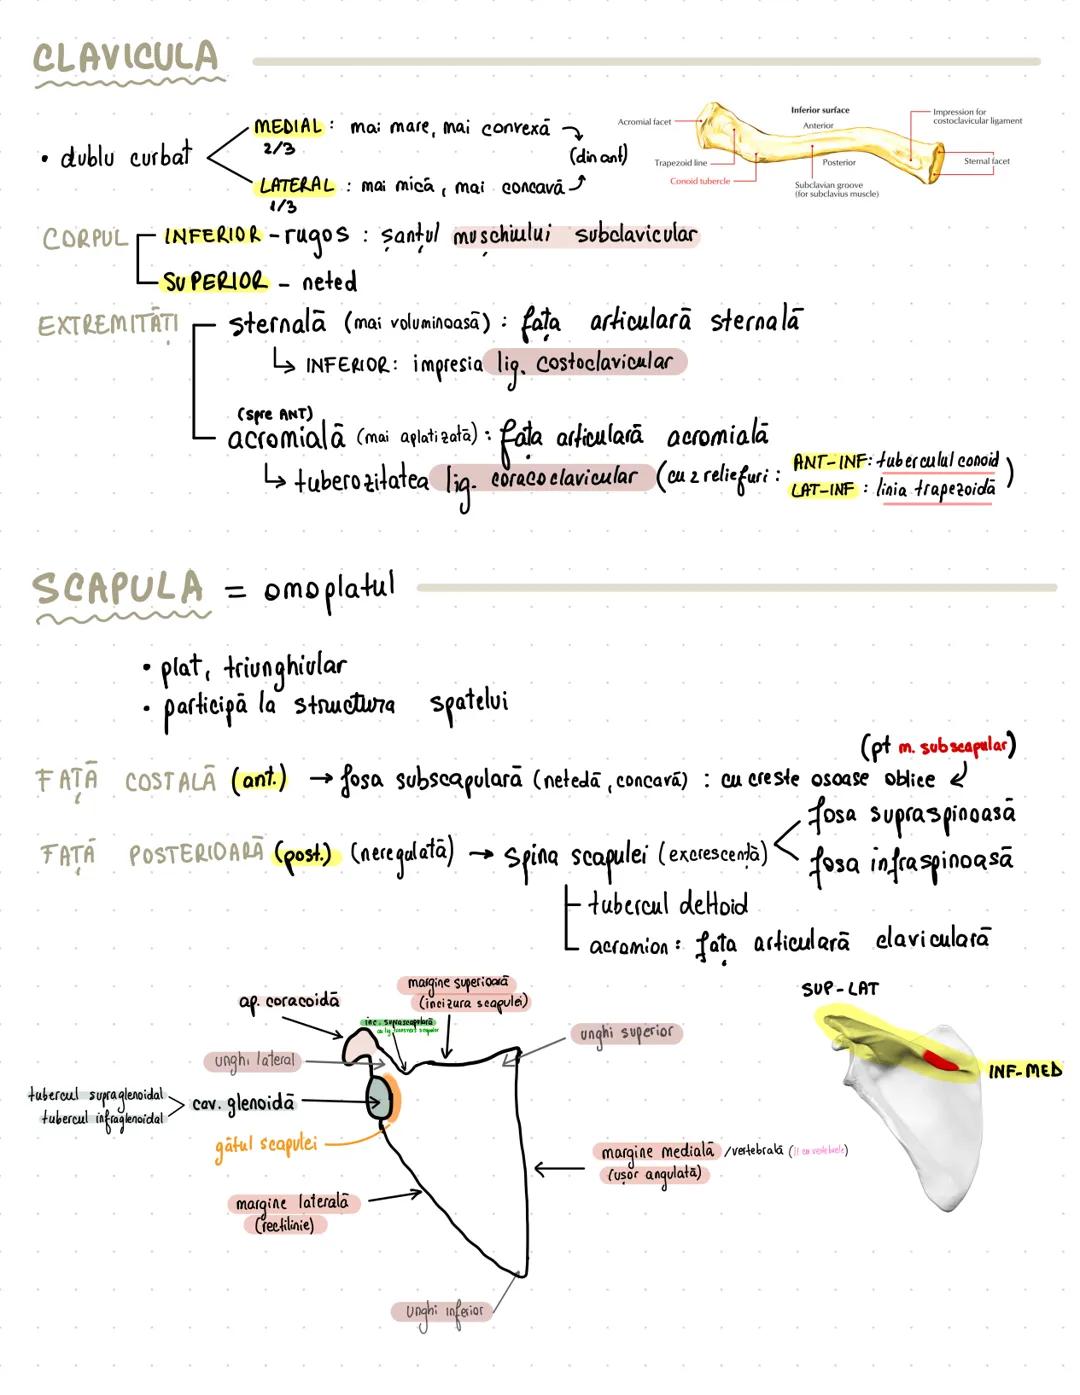 CLAVICULA
• dublu curbat
MEDIAL : mai mare, mai convexă
2/3
(din ant)
LATERAL : mai mică, mai concavă
1/3
Inferior surface
Anterior
Acromial facet
Impression for
costoclavicular ligament
Trapezoid line
Posterior
Sternal facet
Conoid tubercle
Subclavian groove
(for subclavius muscle)
CORPUL
INFERIOR - rugos : șanțul mușchiului subclavicular
SUPERIOR - neted
EXTREMITĂȚI
sternală (mai voluminoasă) : fața articulară sternală
↳ INFERIOR: impresia lig. costoclavicular
(spre ANT)
acromială (mai aplatizată) : fața articulară acromială
↳ tuberozitatea lig. coracoclavicular (cu 2 reliefuri :
ANT-INF: tuberculul conoid
LAT-INF : linia trapezoidă )
SCAPULA = omoplatul
• plat, triunghiular
• participă la structura spatelui
(pt m. subscapular)
FAȚĂ COSTALĂ (ant.) → fosa subscapulară (netedă, concavă) : cu creste osoase oblice
FAȚĂ POSTERIOARĂ (post.) (neregulată) → spina scapulei (excrescență)
fosa supraspinoasă
fosa infraspinoasă
tubercul deltoid
acromion : fața articulară claviculară
ap. coracoidă
margine superioară
(incizura scapulei)
inc. suprascapulară
unghi superior
unghi lateral
tubercul supraglenoidal
tubercul infraglenoidal
cav. glenoidă
gâtul scapulei
margine laterală
(rectilinie)
margine medială /vertebrală (II cu vertebrele)
(ușor angulată)
unghi inferior
SUP-LAT
INF-MED